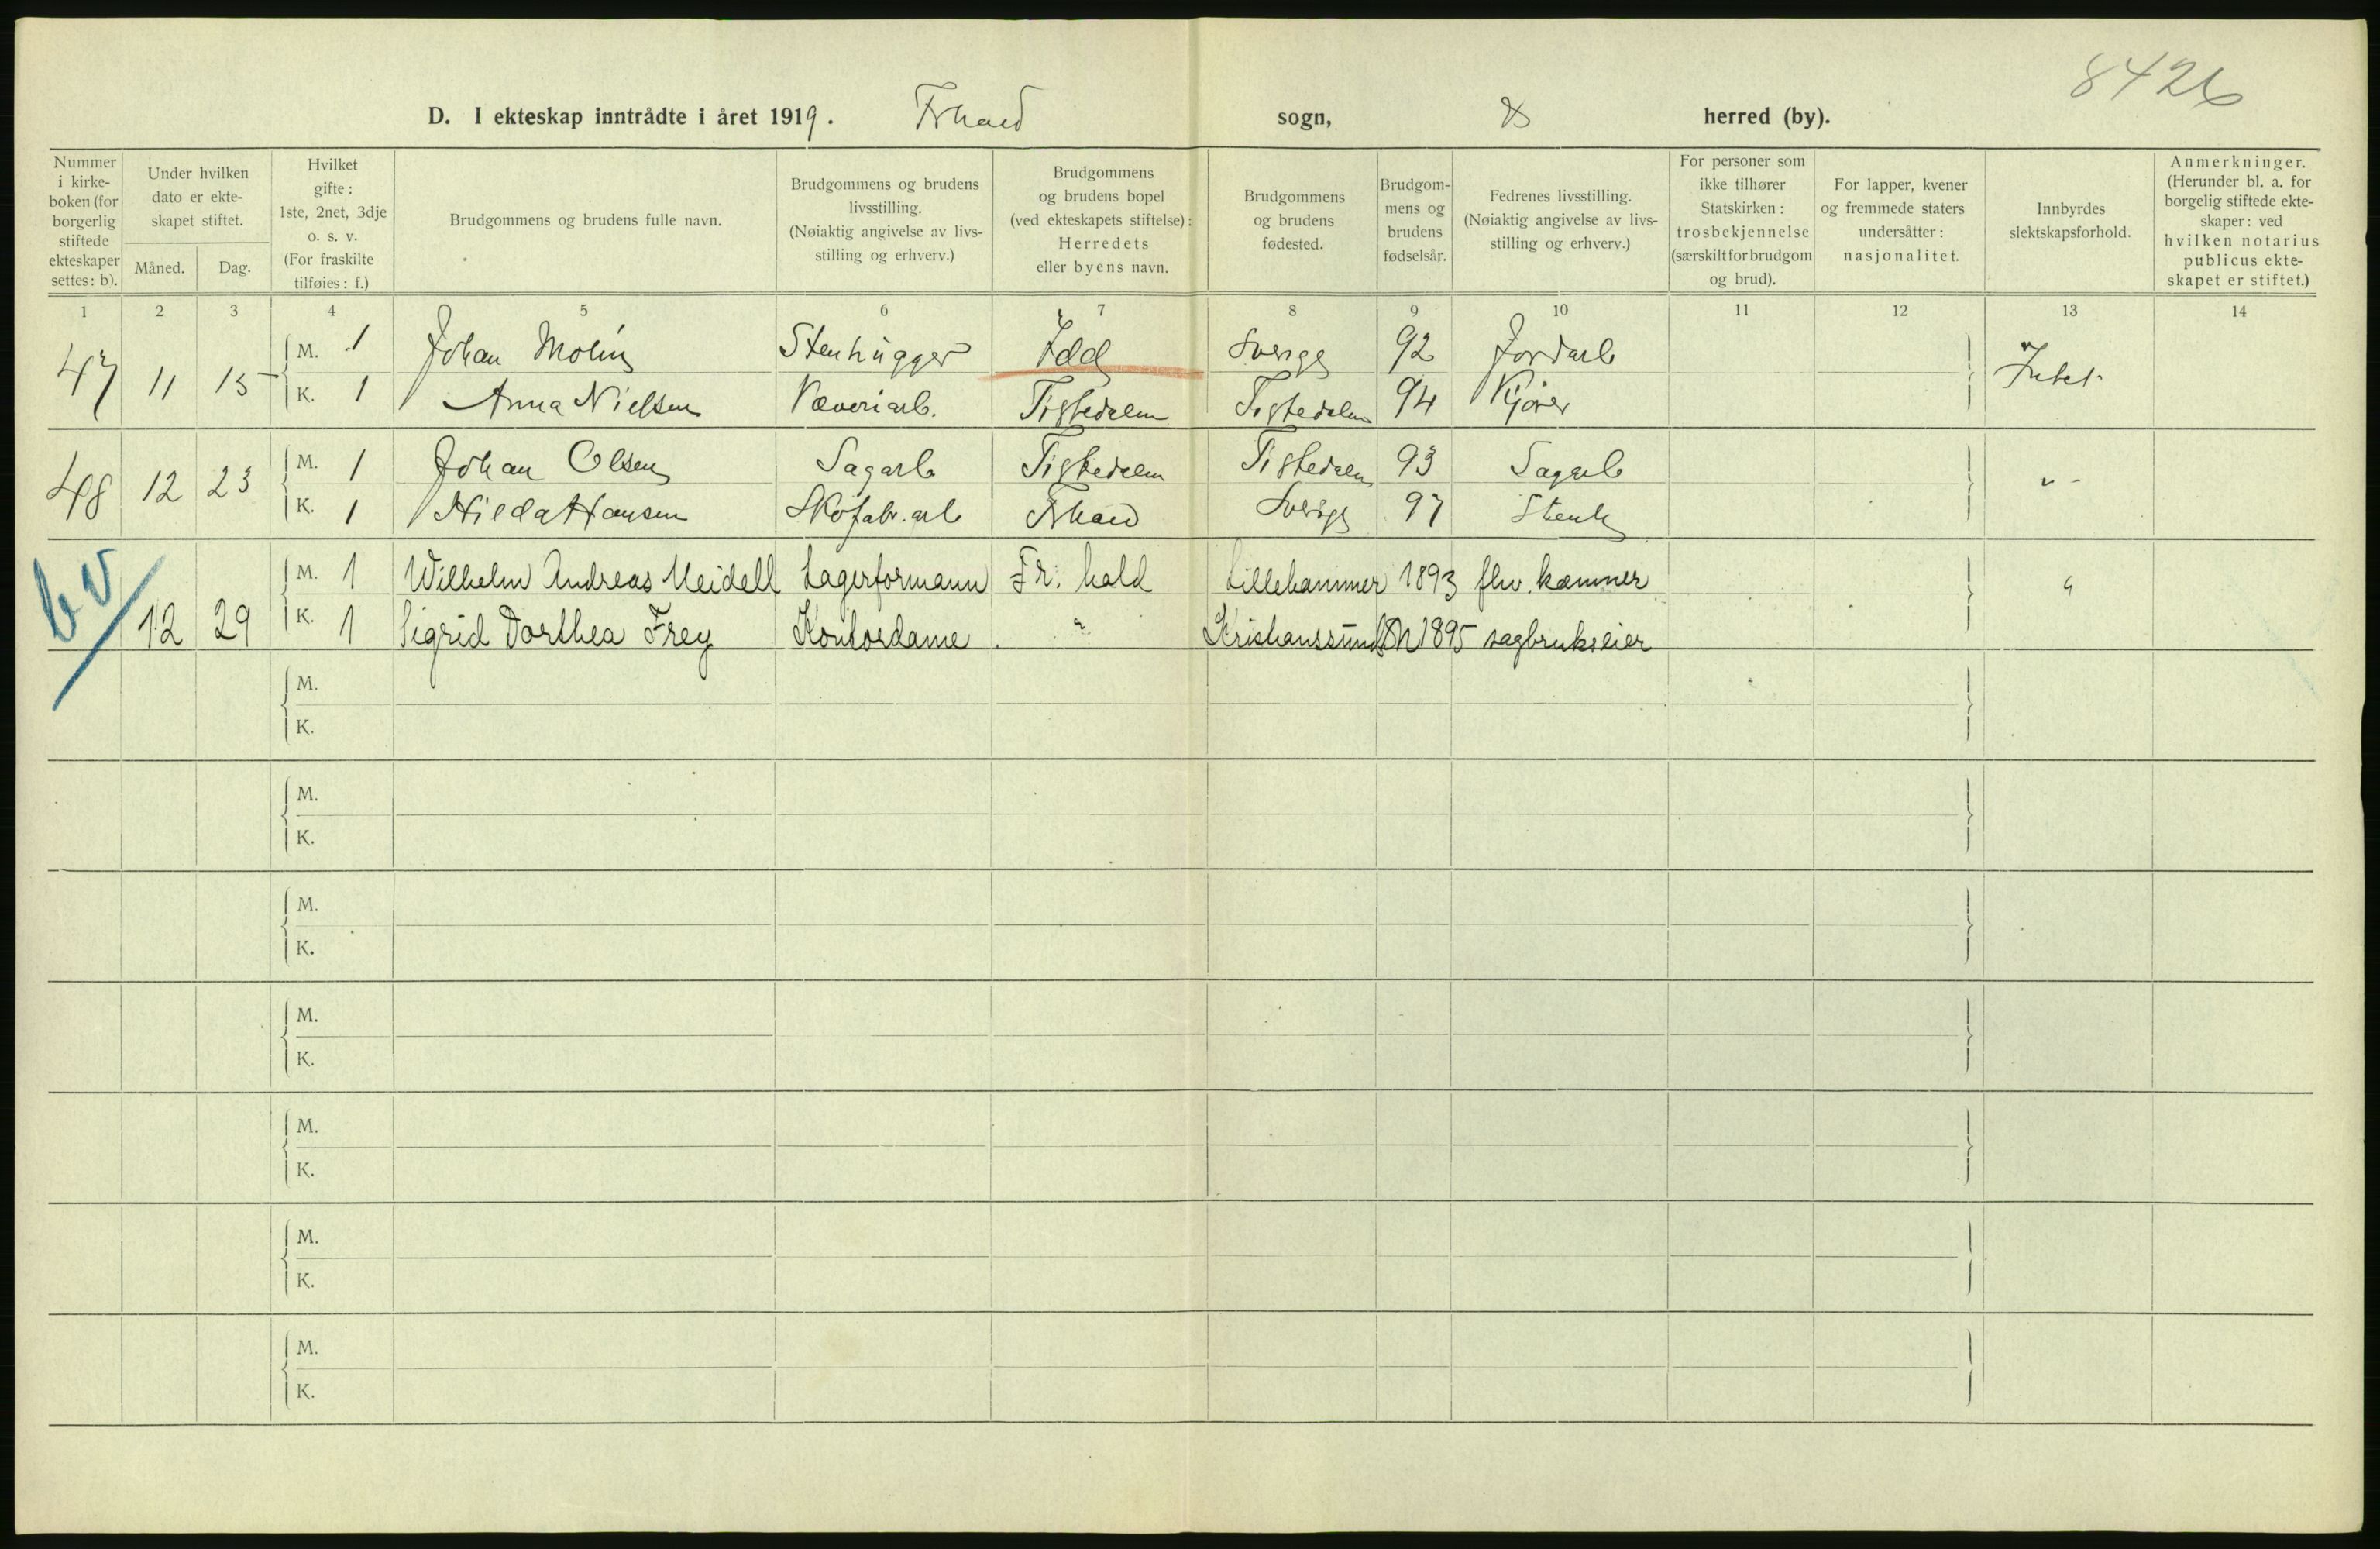 8426
D. I ekteskap inntrådte i året 1919. Frhald sogn, herred (by).
Nummer i kirkeboken (for borgerlig stiftede ekteskaper settes: b).
Under hvilken dato er ekteskapet stiftet.
Måned. Dag.
Hvilket gifte: 1ste, 2net, 3dje o. s. v. (For fraskilte tilføies: f.)
Brudgommens og brudens fulle navn.
Brudgommens og brudens livsstilling. (Nøiaktig angivelse av livsstilling og erhverv.)
Brudgommens og brudens bopel (ved ekteskapets stiftelse): Herredets eller byens navn.
Brudgommens og brudens fødested.
Brudgommens og brudens fødselsår.
Fedrenes livsstilling. (Nøiaktig angivelse av livsstilling og erhverv.)
For personer som ikke tilhører Statskirken: trosbekjennelse (særskilt for brudgom og brud).
For lapper, kvener og fremmede staters undersåtter: nasjonalitet.
Innbyrdes slektskapsforhold.
Anmerkninger. (Herunder bl. a. for borgelig stiftede ekteskaper: ved hvilken notarius publicus ekteskapet er stiftet.)
1 2 3 4 5 6 7 8 9 10 11 12 13 14
M. 1 Johan Molin Stenhugger Idd Sverige 92 Jordarb
47 11 15 Intet
K. 1 Anna Nielsen Væveriarb. Tistedalen Tistedalen 94 Kjører
M. 1 Johan Olsen Sagarb Tistedalen Tistedalen 93 Sagarb
48 12 23 " -
K. 1 Hilda Hansen Skofabr. arb Frhald Sverige 97 Stenh
M. 1 Wilhelm Andreas Meidell Lagerformann Fr. hald Lillehammer 1893 fhv. kæmner "
bv 12 29
K. 1 Sigrid Dorthea Frey Kontordame " Kristianssund N 1895 sagbrukseier
M.
K.
M.
K.
M.
K.
M.
K.
M.
K.
M.
K.
M.
K.